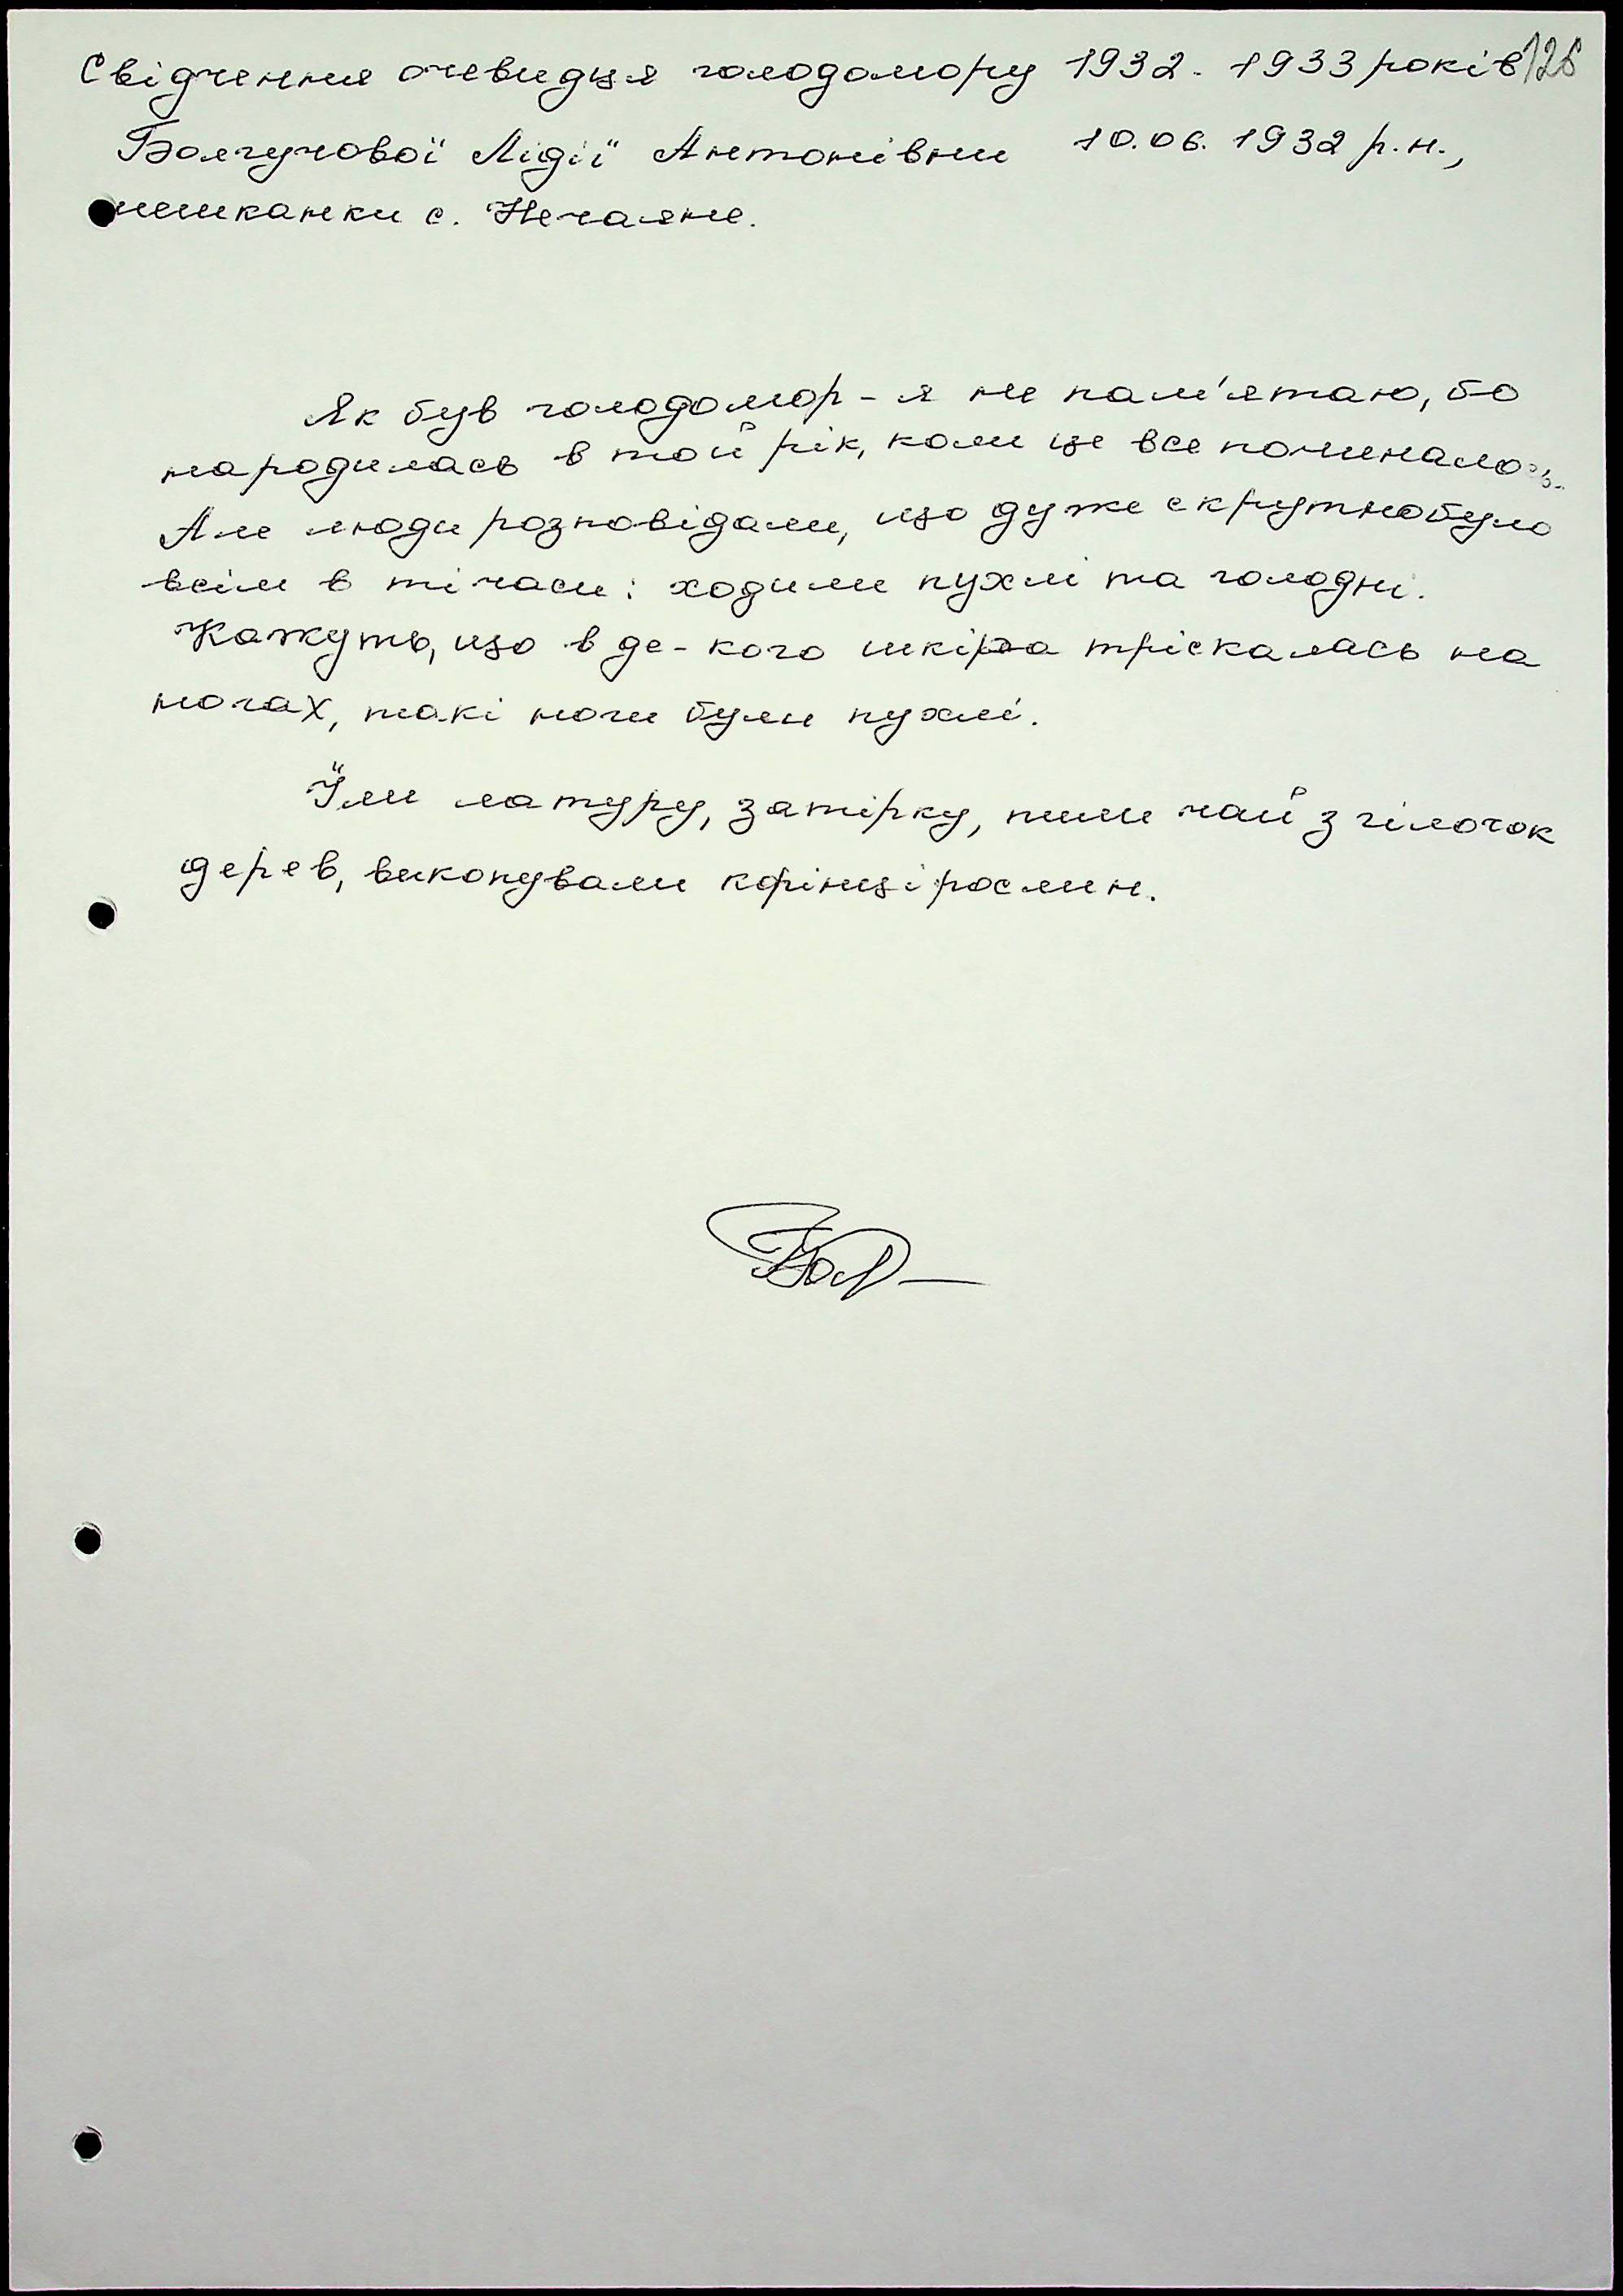 Свідчення очевидця голодомору 1932-1933 років 128
Болгучової Лідії Антонівни 10.06.1932 р.н.,
мешканки с. Нечаяне.
Як був голодомор - я не пам'ятаю, бо
народилась в той рік, коли це все починалось.
Але люди розповідали, що дуже скрутно було
всім в ті часи: ходили пухлі та голодні.
Кажуть, що в де-кого шкіра тріскалась на
ногах, такі ноги були пухлі.
Їли матуру, затірку, пили чай з гілочок
дерев, викопували корінці рослин.